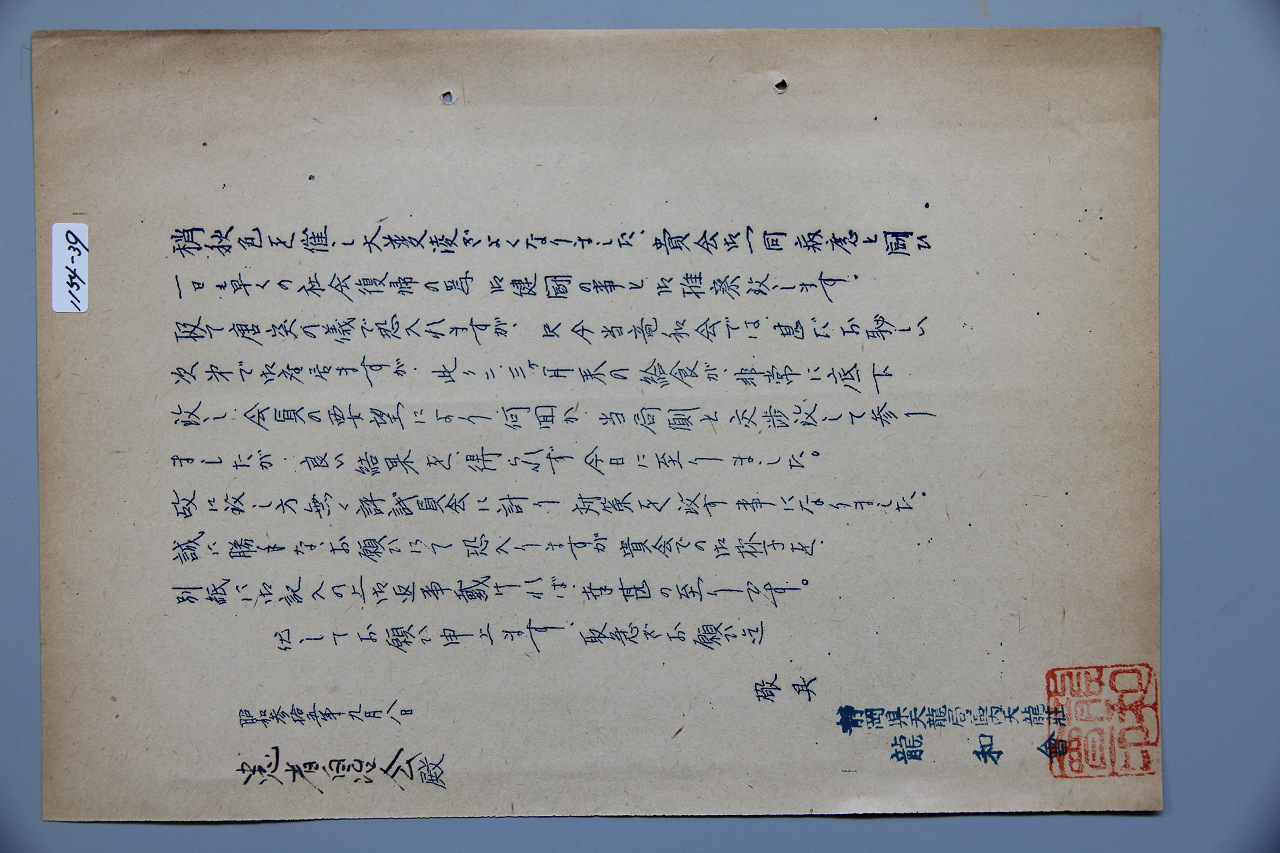 稍秋色を催し大変凌ぎよくなりました、貴会皆々一同病患と闘ひ
一日も早くの社会復帰の為御健闘の事と御推察致します。
取て唐突の儀で恐入れますが、只今当竜和会では甚だお恥しい
次第で御座居ますが、此々二、三ヶ月来の給食が非常に底下
致し会員の要望により何回か当局側と交渉致して参り
ましたが良い結果を得られず今日に至りました。
故に致し方無く評議員会に計り対策を致す事になりました。
誠に勝手なお願ひにて恐入りますが貴会での御様子を
別紙に御記入の上御返事戴ければ幸甚の至りです。
伏してお願ひ申上ます 取急ぎお願ひ迄
敬具
昭和参拾年九月八日
静岡県天龍局区内天龍荘
龍和會
患者自治会殿
1154-39